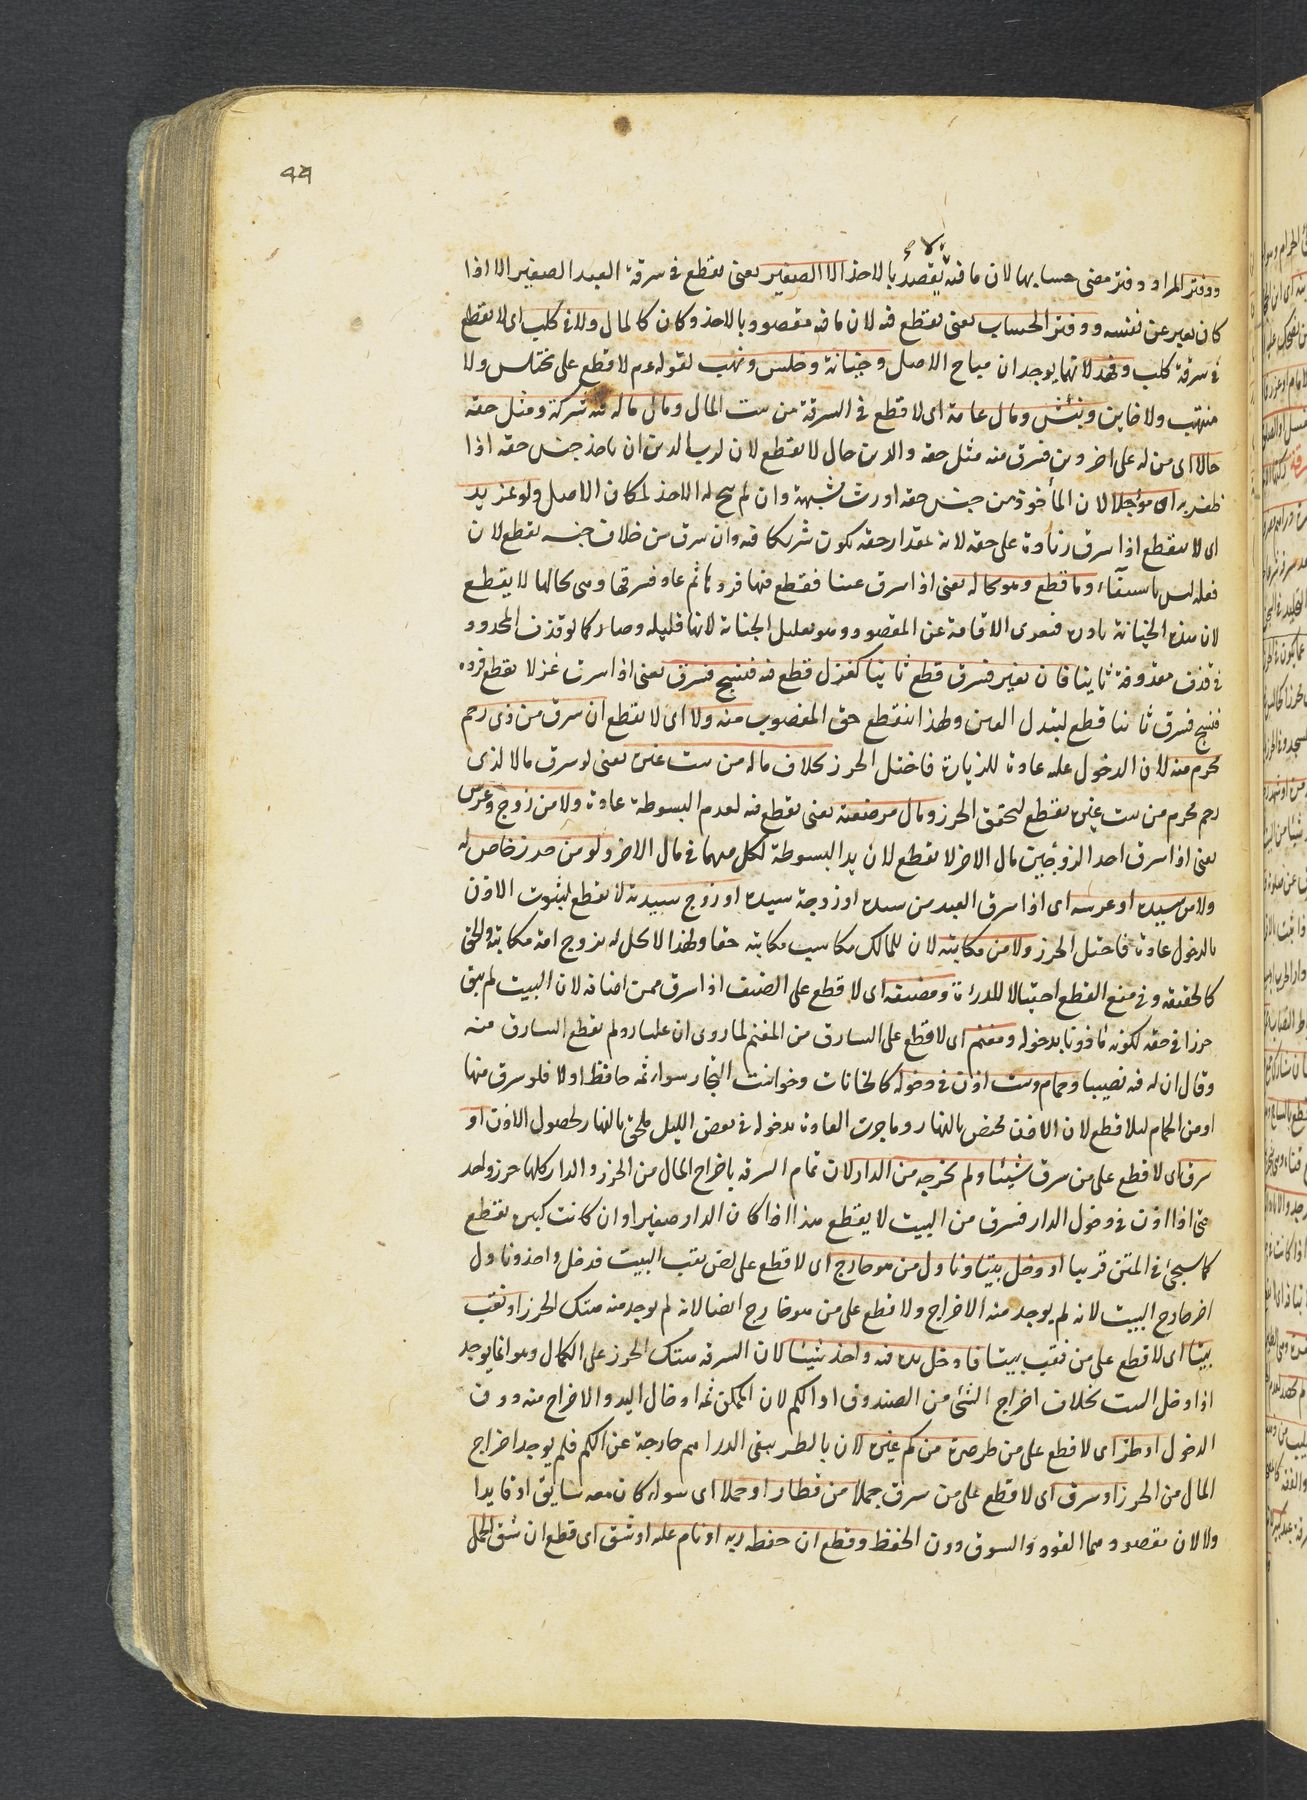 ٩٩
لا
ودفتر المراد دفتر مضى حسابها لان ما فيه يقصد بالاخذ الا الصغير يعنى يقطع فى سرقة العبد الصغير الا اذا
كان يعبر عن نفسه ودفتر الحساب يعنى يقطع فيه لان ما فيه مقصود بالاخذ وكان كالمال ولا فى كلب اى لا يقطع
فى سرقة كلب وفهد لانهما يوجدان مباح الاصل وخيانة وخلس ونهب لقوله عم لا قطع على مختلس ولا
منتهب ولا خاين ونبش ومال عامة اى لا قطع فى السرقة من بيت المال ومال ماله فيه شركة ومثل حقه
حالا اى من له على اخر دين فسرق منه مثل حقه والدين حال لا يقطع لان لرب الدين ان ياخذ جنس حقه اذا
ظفر به او مؤجلا لان المأخوذ من جنس حقه اورث شبهة وان لم يبح له الاخذ لمكان الاصل ولو بمزيد
اى لا يقطع اذا سرق زيادة على حقه لانه بمقدار حقه يكون شريكا فيه وان سرق من خلاف جنسه يقطع لان
فعله ليس باستيفاء وما قطع وهو بحاله يعنى اذا سرق عينا فقطع فيها فردها ثم عاد فسرقها وهى بحالها لا يقطع
لان هذه الخيانة نادرة فتعرى الاقامة عن المقصود وهو تقليل الجناية لانها قليلة وصار كما لو قذف المحدود
فى قذف مقذوفه ثانيا فان تغير فسرق قطع ثانيا كغزل قطع فيه فنسج فسرق يعنى اذا سرق غزلا يقطع فرده
فنسج فسرق ثانيا قطع لتبدل العين ولهذا انقطع حق المغصوب منه ولا اى لا يقطع ان سرق من ذى رحم
محرم منه لان الدخول عليه عادة للزيارة فاختل الحرز بخلاف ماله من بيت غيره يعنى لو سرق مالا لذى
رحم محرم من بيت غيره يقطع لتحقق الحرز ومال مرضعته يعنى يقطع فيه لعدم البسوطة عادة ولا من زوج وعرس
يعنى اذا سرق احد الزوجين مال الاخر لا يقطع لان يد البسوطة لكل منهما فى مال الاخر ولو من حرز خاص له
ولا من سيده او عرسه اى اذا سرق العبد من سيده او زوجة سيده او زوج سيدته لا يقطع لثبوت الاذن
بالدخول عادة فاختل الحرز ولا من مكاتبه لان للمالك مكاسب مكاتبه حقا ولهذا لا يحل له تزوج امة مكاتبه والحق
كالحقيقة وفى منع القطع احتيالا للدرءة ومضيفه اى لا قطع على الضيف اذا سرق ممن اضافه لان البيت لم يبق
حرزا فى حقه لكونه مأذونا بدخوله ومغنم اى لا قطع على السارق من المغنم لما روى ان عليا رد ولم يقطع السارق منه
وقال ان له فيه نصيبا وحمام وبيت اذن فى دخوله كالخانات وحوانيت التجار سواء ثمه حافظ اولا فلو سرق منها
او من الحمام ليلا قطع لان الاذن مختص بالنهار وما جرت العادة بدخوله فى بعض الليل ملحق بالنهار لحصول الاذن او
سرق اى لا قطع على من سرق شيئا ولم يخرجه من الدار لان تمام السرقة باخراج المال من الحرز والدار كلها حرز واحد
حتى اذا اذن فى دخول الدار فسرق من البيت لا يقطع هذا اذا كان الدار صغيرا وان كانت كبيره يقطع
كما سيجئ فى المتن قريبا او دخل بيتا وناول من هو خارج اى لا قطع على لص نقب البيت فدخل واخذ وناول
اخر خارج البيت لانه لم يوجد منه الاخراج ولا قطع على من هو خارج ايضا لانه لم يوجد منه هتك الحرز او نقب
بيتا اى لا قطع على من نقب بيتا فادخل يده فيه واخذ شيئا لان السرقه هتك الحرز على الكمال وهو انما يوجد
اذا دخل البيت بخلاف اخراج الشئ من الصندوق او الكم لان الممكن ثمه ادخال اليد والاخراج منه دون
الدخول او طرّ اى لا قطع على من طر صرة من كم غيره لان بالطر يبقى الدراهم خارجة عن الكم فلم يوجد اخراج
المال من الحرز او سرق اى لا قطع على من سرق جملا من قطار او حملا اى سواء كان معه سايق او قايد
ولا لان مقصودهما القود والسوق دون الحفظ وقطع ان حفظه ربه او نام عليه او شق اى قطع ان شق الحمل